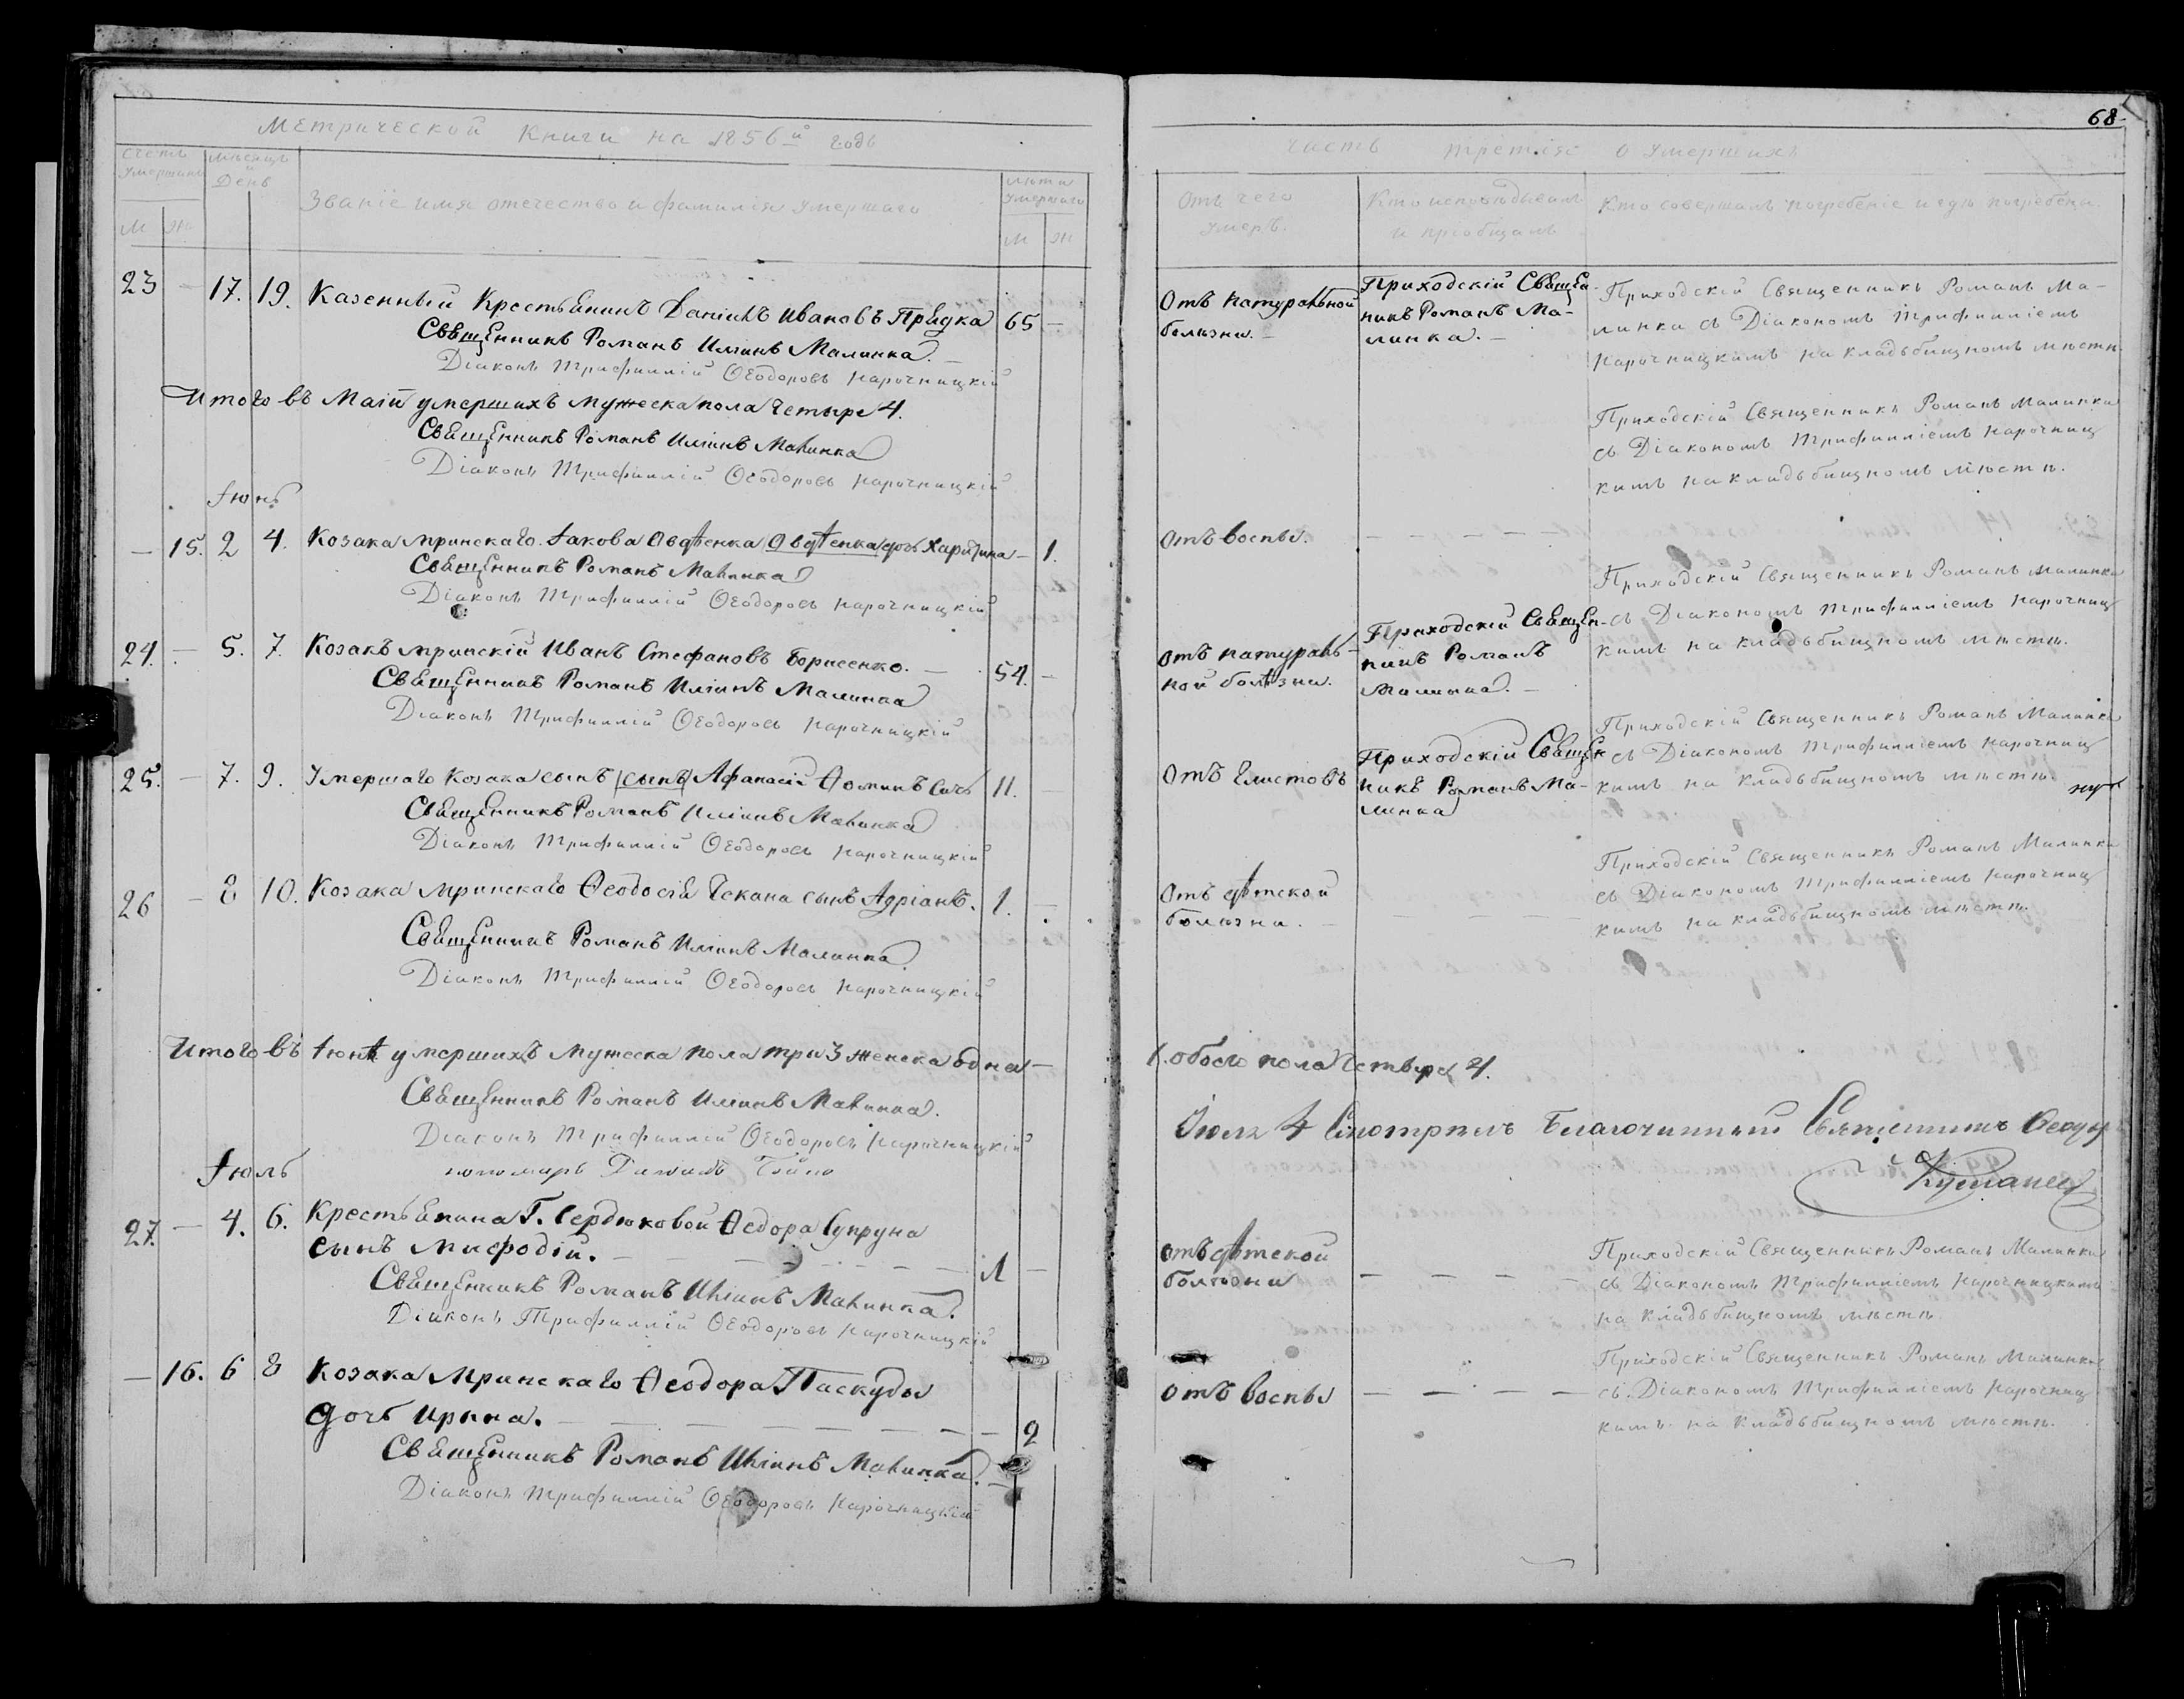 68
Метрической Книги на 1856й годъ
Счетъ умершихъ
Мѣсяцъ и День
Званіе имя отечество и фамилія умершаго
Лѣта умершаго
М Ж
М Ж
23 — 17. 19. Казенный Крестьянинъ Даніилъ Ивановъ Прядка 65 —
Священникъ Романъ Иліинъ Малинка. —
Діаконъ Трифиллій Ѳеодоровъ Нарочницкій
Итого въ Маіи умершихъ мужеска пола четыре 4.
Священникъ Романъ Иліинъ Малинка
Діаконъ Трифиллій Ѳеодоровъ Нарочницкій
Іюнь
— 15. 2 4. Козака мринскаго Іакова Овдѣенка Овдѣенка дочь Харитина — 1.
Священникъ Романъ Малинка
Діаконъ Трифиллій Ѳеодоровъ Нарочницкій
24. — 5. 7. Козакъ мринскій Иванъ Стефановъ Борисенко. — 54. —
Священникъ Романъ Иліинъ Малинка
Діаконъ Трифиллій Ѳеодоровъ Нарочницкій
25. — 7. 9. Умершаго Козака сынъ (сынъ) Афанасій Ѳоминъ 11. —
Священникъ Романъ Иліинъ Малинка
Діаконъ Трифиллій Ѳеодоровъ Нарочницкій
26 — 8 10. Козака мринскаго Ѳеодосія Чекана сынъ Адріанъ. 1. —
Священникъ Романъ Иліинъ Малинка
Діаконъ Трифиллій Ѳеодоровъ Нарочницкій
Итого въ Іюнѣ умершихъ мужеска пола три 3 женска одна —
Священникъ Романъ Иліинъ Малинка.
Діаконъ Трифиллій Ѳеодоровъ Нарочницкій
пономарь
Іюль
27. — 4. 6. Крестьянина Г. Сердюковой Ѳедора Супруна
сынъ Мифодій. — 1 —
Священникъ Романъ Иліинъ Малинка.
Діаконъ Трифиллій Ѳеодоровъ Нарочницкій
— 16. 6 8 Козака Мринскаго Ѳеодора Паскуды
дочь Ирина. — 2
Священникъ Романъ Иліинъ Малинка. —
Діаконъ Трифиллій Ѳеодоровъ Нарочницкій
Часть третія о умершихъ
Отъ чего умеръ.
Кто исповѣдывалъ и пріобщалъ
Кто совершалъ погребеніе и гдѣ погребены.
Отъ натуральной
болѣзни. —
Приходскій Священ-
никъ Романъ Ма-
линка. —
Приходскій Священникъ Романъ Ма-
линка съ Діакономъ Трифилліемъ
Нарочницкимъ на кладьбищномъ мѣстѣ.
Приходскій Священникъ Романъ Малинка
съ Діакономъ Трифилліемъ Нарочниц
кимъ на кладьбищномъ мѣстѣ.
Отъ воспы.
Приходскій Священникъ Романъ Малинка
съ Діакономъ Трифилліемъ Нарочниц
кимъ на кладьбищномъ мѣстѣ.
отъ натураль-
ной болѣзни.
Приходскій Священ-
никъ Романъ
Малинка. —
Приходскій Священникъ Романъ Малинка
съ Діакономъ Трифилліемъ Нарочниц
кимъ на кладьбищномъ мѣстѣ.
Отъ Глистовъ
Приходскій Священ
никъ Романъ Ма-
линка
Приходскій Священникъ Романъ Малинка
съ Діакономъ Трифилліемъ Нарочниц
кимъ на кладьбищномъ мѣстѣ.
Отъ дѣтской
болѣзни. —
1. обоего пола четыре 4.
Іюля 4 смотрѣлъ Благочинный Священникъ
Отъ дѣтской
болѣзни
Приходскій Священникъ Романъ Малинка
съ Діакономъ Трифилліемъ Нарочницкимъ
на кладьбищномъ мѣстѣ
отъ воспы
Приходскій Священникъ Романъ Малинка
съ Діакономъ Трифилліемъ Нарочниц
кимъ на кладьбищномъ мѣстѣ.